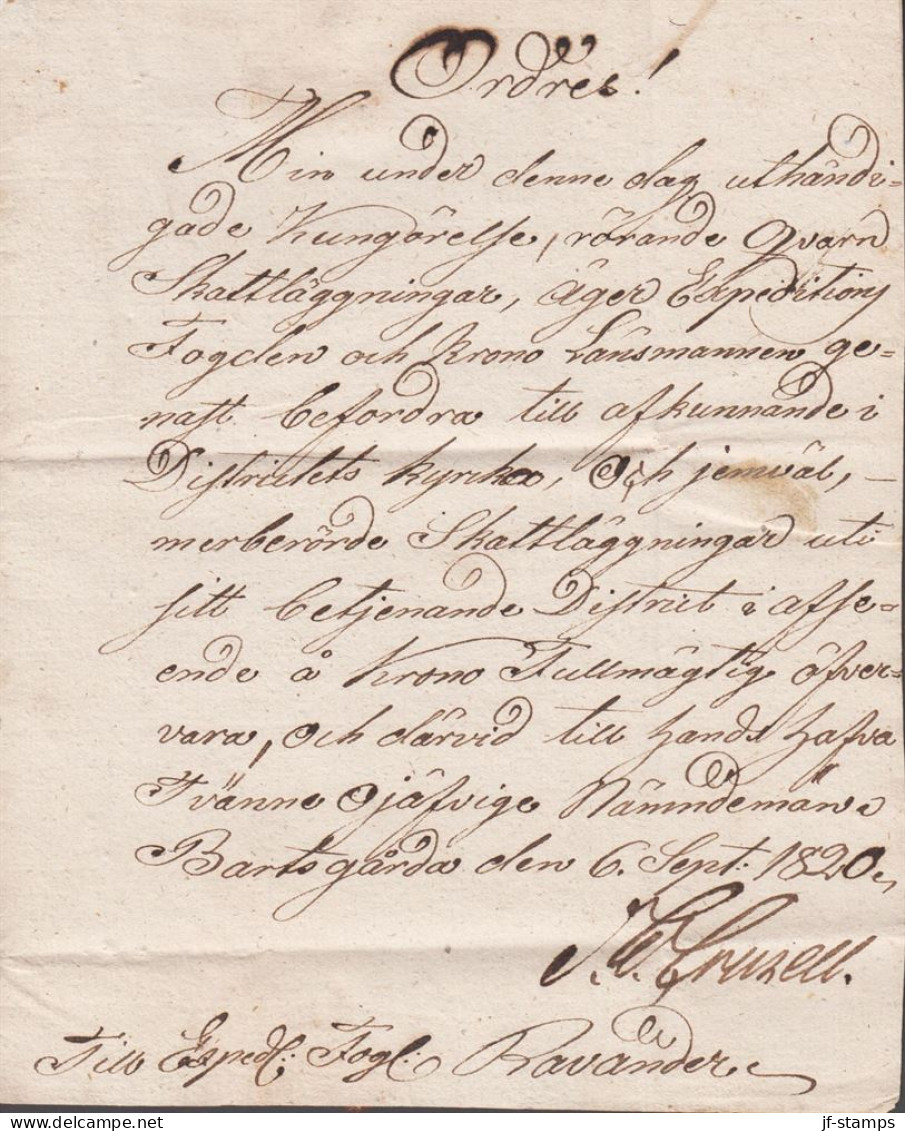 Ordres!
Min under denne dag uthändi=
gade Kungörelse, rörande Qvarn
Skattläggningar, äger Expeditions
Fogden och Krono Länsmannen ge=
nast befordra till afkunnande i
Districtets kyrka, och jemväl,
merberörde Skattläggningar uti
sitt betjenande District i afse=
ende å Krono Fullmägtig öfver=
vara, och därvid till hands hafva
Tvänne Ojäfvige Nämndemän.
Bartsgårda den 6. Sept: 1820.
Till Exped: Fogd: Ravander
jf-stamps